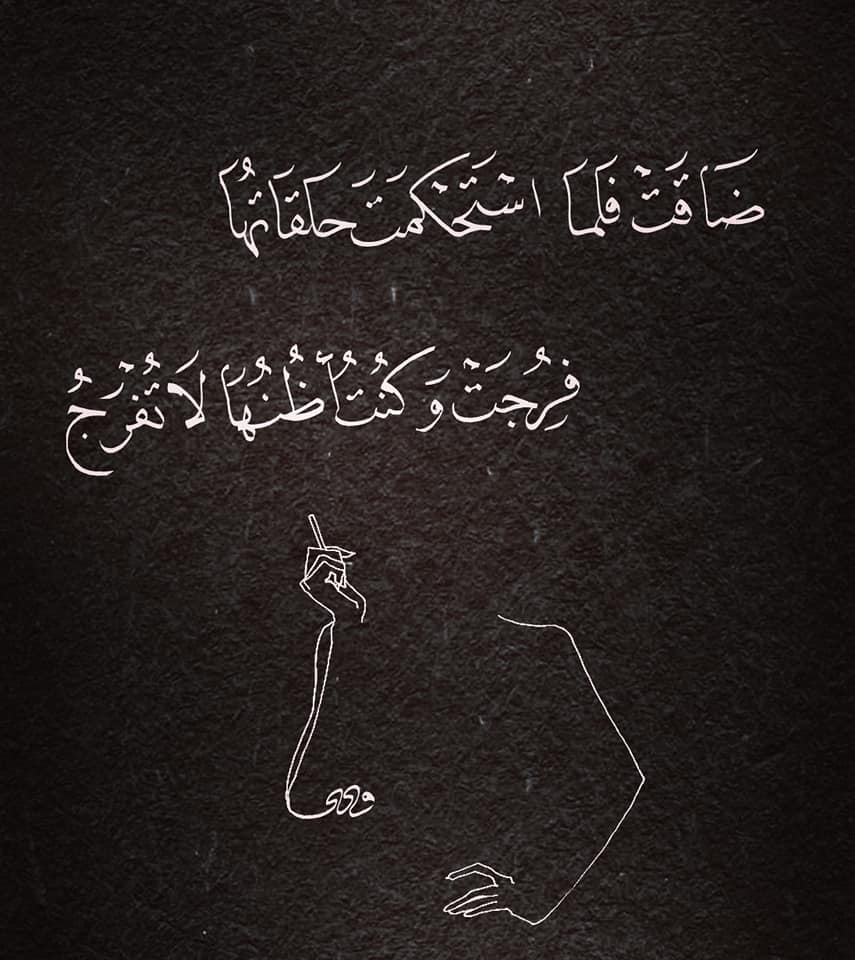 ضَاقَتْ فَلَمَا اسْتَحْكَمَتَ حَلَقَاتَهُا
فِرُجَتْ وَكُنْتُ أَظُنُهُا لَا تُفْرَجُ